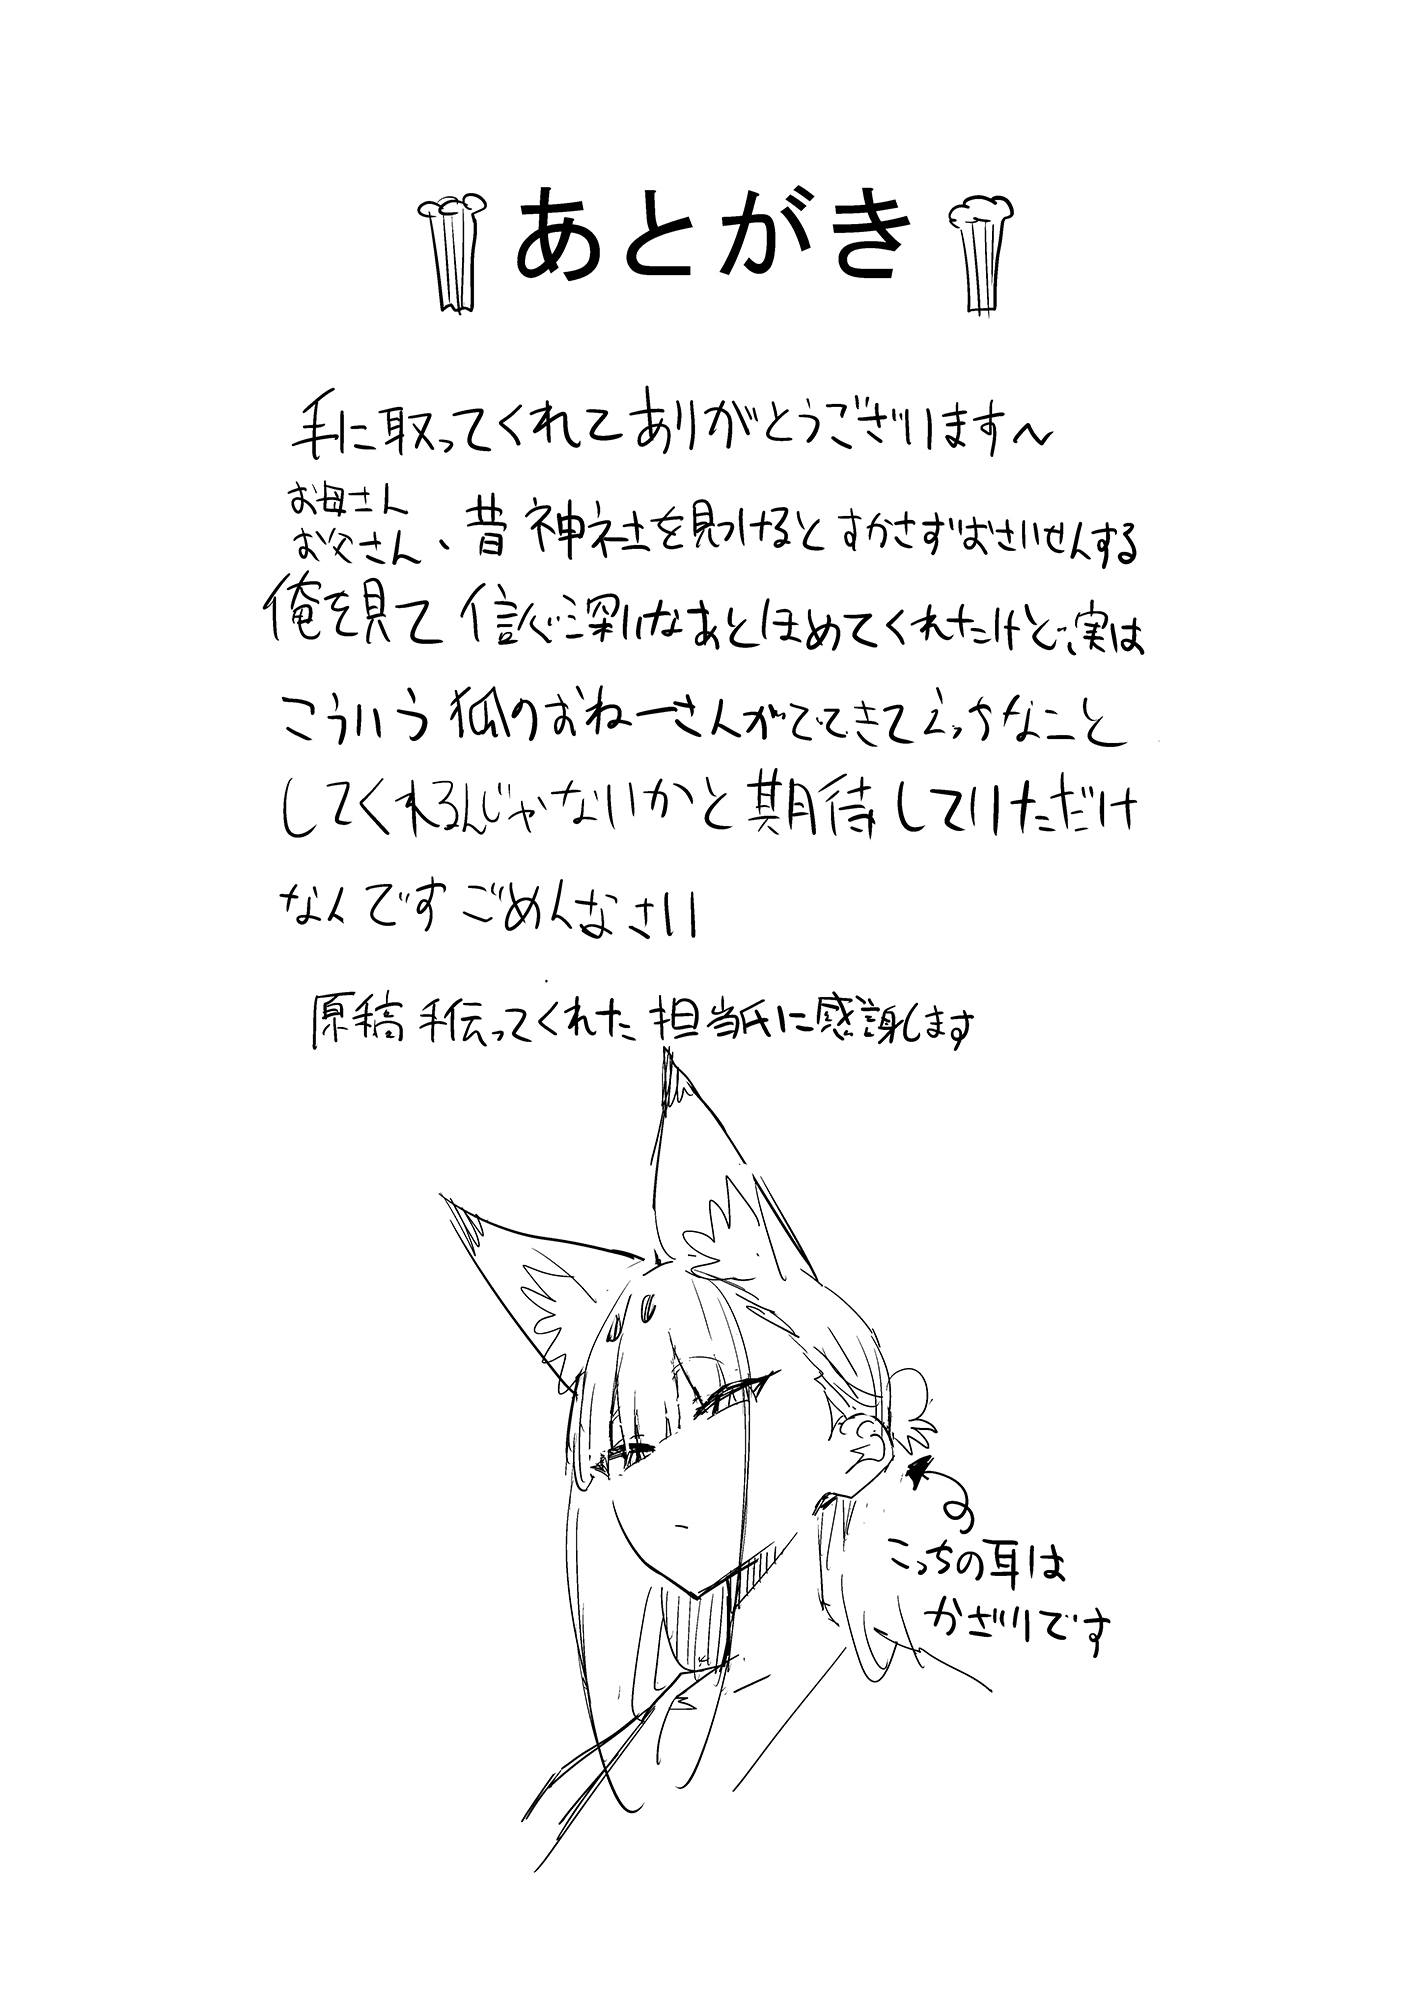 あとがき
手に取ってくれてありがとうございます〜
お母さん
お父さん、昔神社を見つけるとすかさずおさいせんする
俺を見て信心深いなぁとほめてくれたけど、実は
こういう狐のおねーさんがでてきてえっちなこと
してくれるんじゃないかと期待していただけ
なんですごめんなさい
原稿手伝ってくれた担当氏に感謝します
こっちの耳は
かざりです